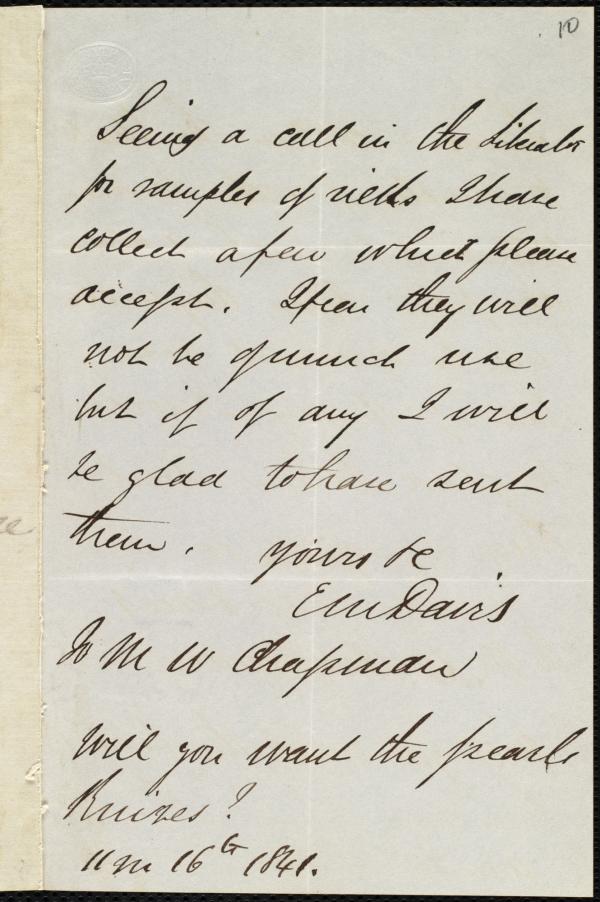 10
Seeing a call in the Liberator
for samples of silks I have
collect a few which please
accept. I fear they will
not be of much use
but if of any I will
be glad to have sent
them. yours &c
E M Davis
To M W Chapman
Will you want the pearl
Knives?
11 m 16th 1841.